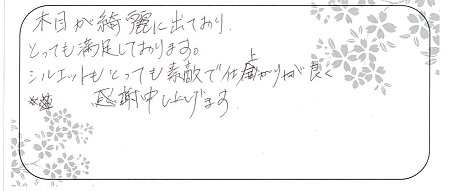 木目が綺麗に出ており、
とっても満足しております。
シルエットもとっても素敵で仕上がりが良く
感謝申し上げます